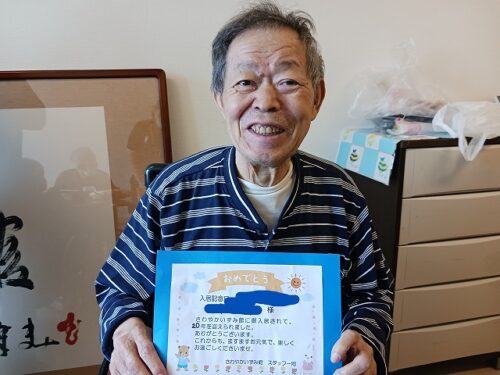 おめでとう
入居記念日
様
さわやかいずみ館に御入居されて、
20年を迎えられました。
ありがとうございます。
これからも、ますますお元気で、楽しく
お過ごしくださいませ。
さわやかいずみ館 スタッフ一同